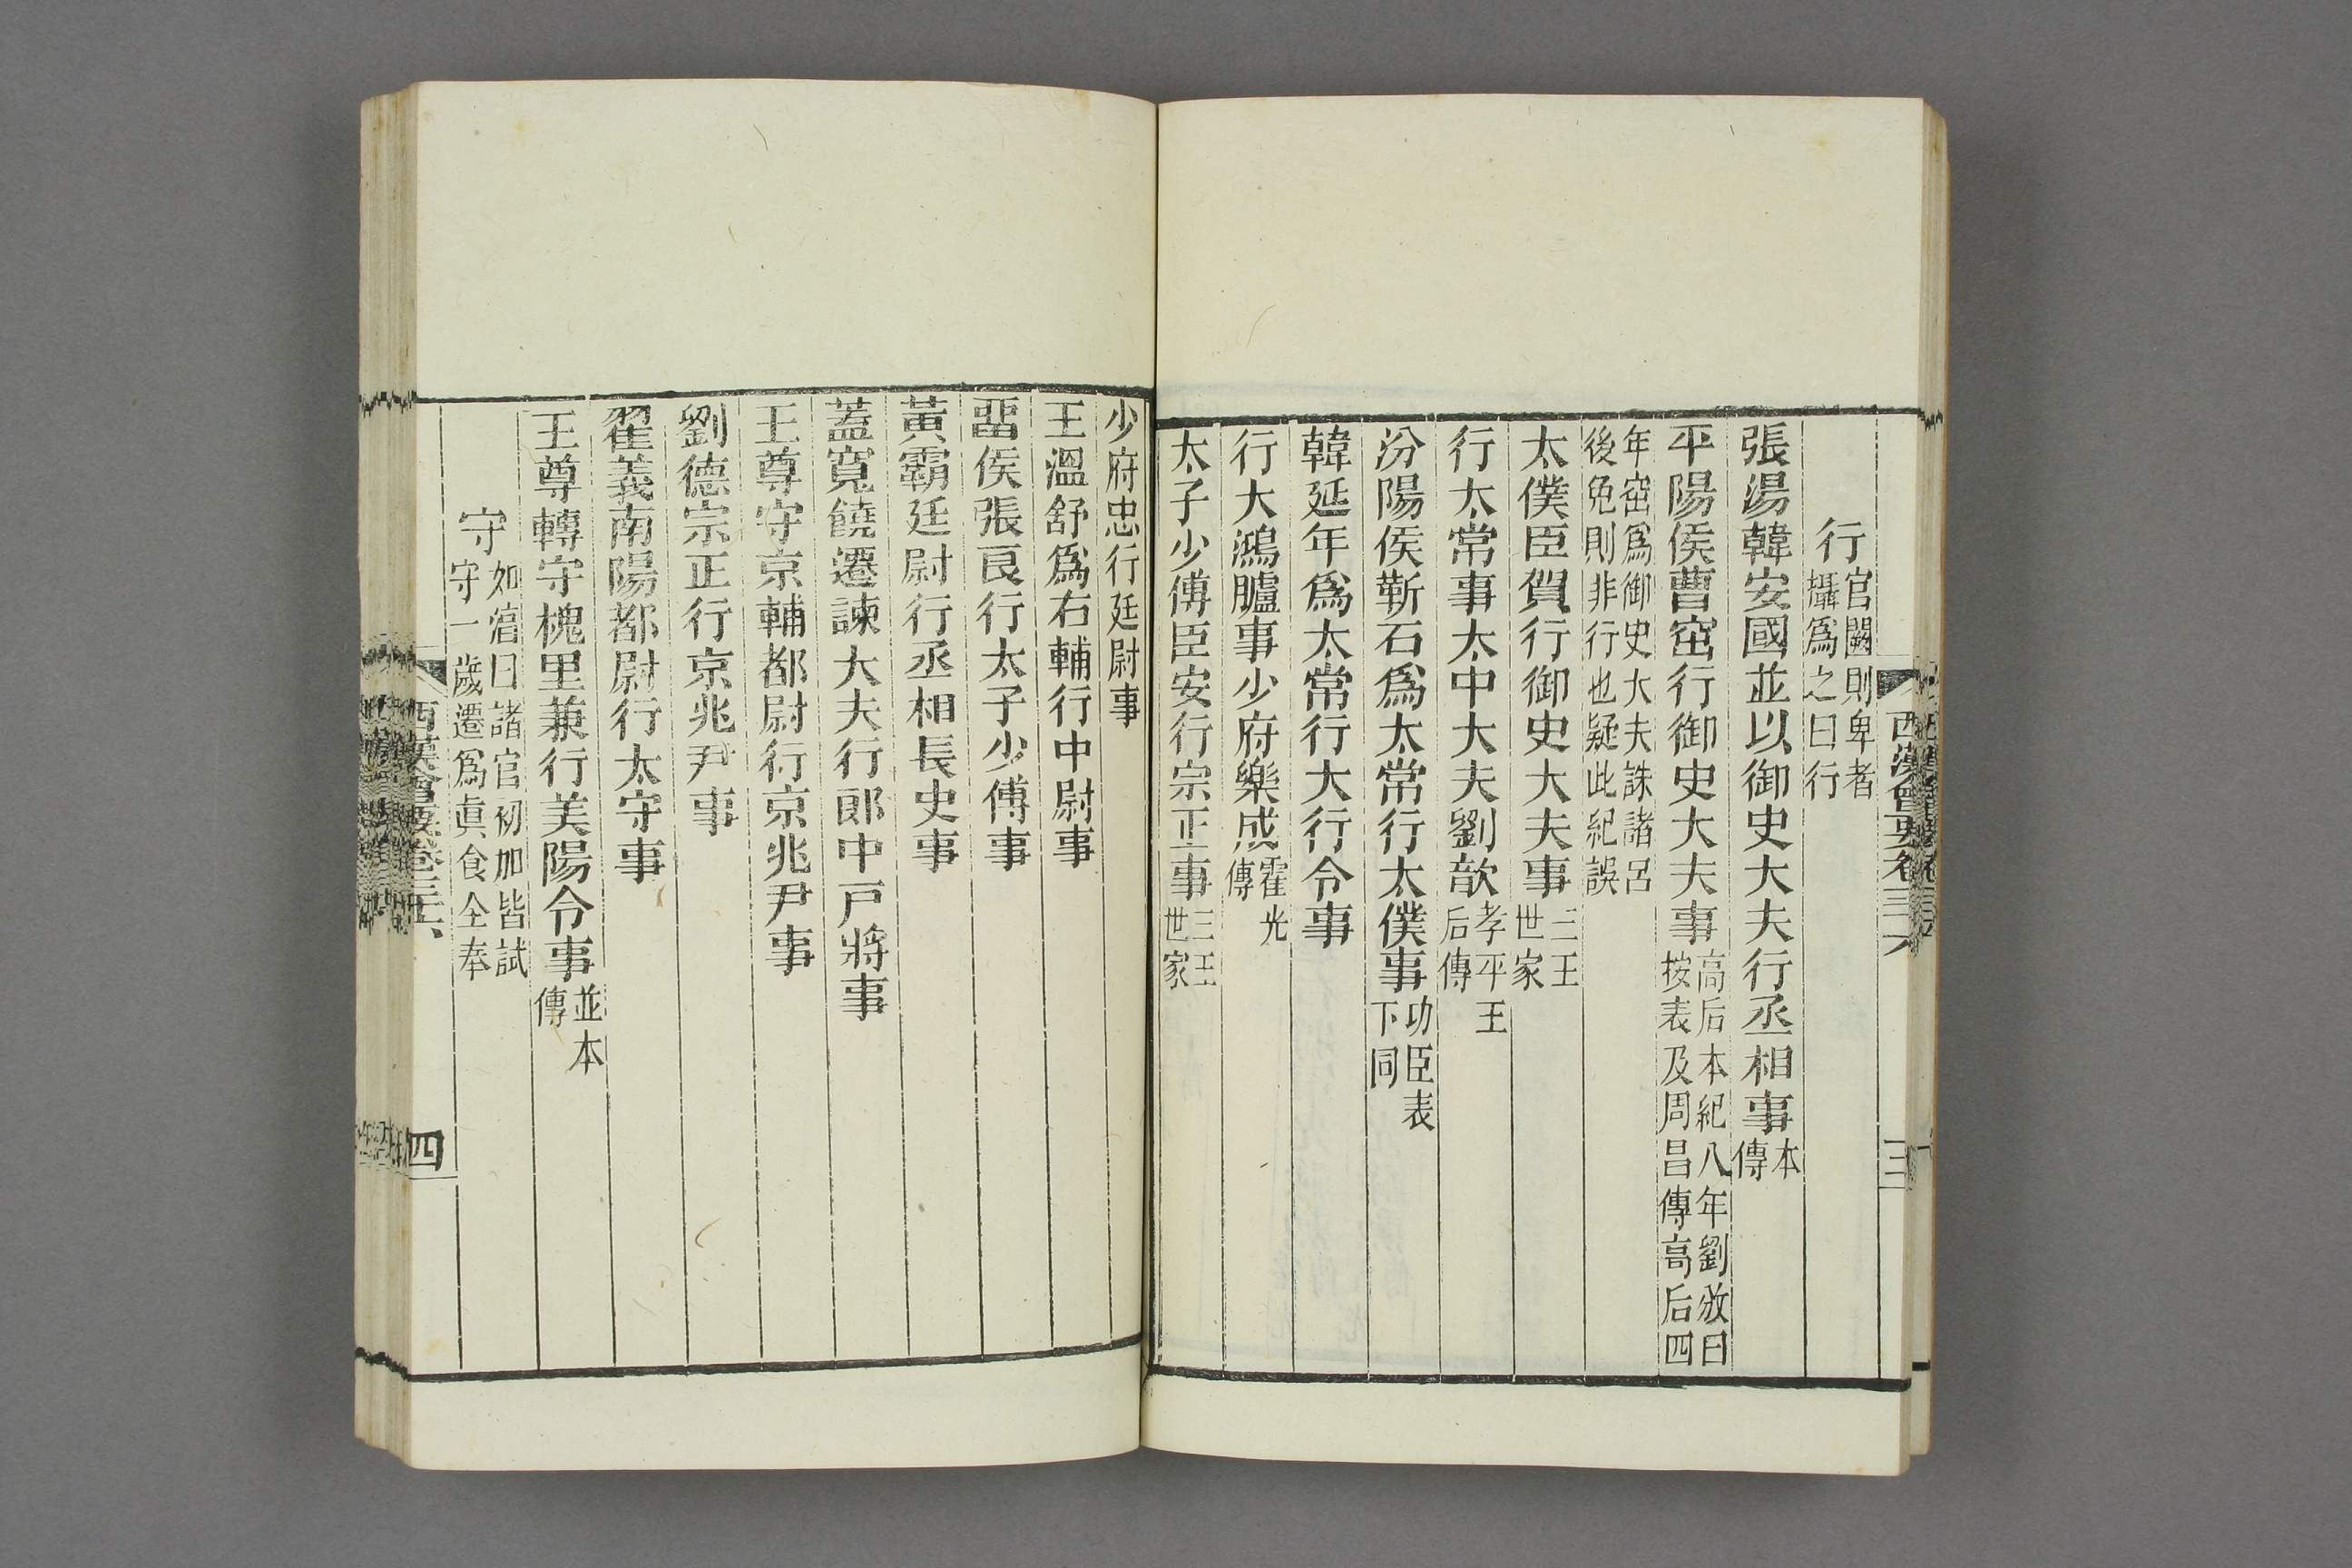 西漢會要卷三十六
三
行官闕則卑者攝爲之曰行
張湯韓安國並以御史大夫行丞相事本傳
平陽侯曹窋行御史大夫事高后本紀八年劉攽曰按表及周昌傳高后四
年窋爲御史大夫誅諸呂後免則非行也疑此紀誤
太僕臣賀行御史大夫事三王世家
行太常事太中大夫劉歆孝平王后傳
汾陽侯靳石爲太常行太僕事功臣表下同
韓延年爲太常行大行令事
行大鴻臚事少府樂成霍光傳
太子少傅臣安行宗正事三王世家
少府忠行廷尉事
王溫舒爲右輔行中尉事
畱侯張良行太子少傅事
黃霸廷尉行丞相長史事
蓋寬饒遷諫大夫行郎中戸將事
王尊守京輔都尉行京兆尹事
劉德宗正行京兆尹事
翟義南陽都尉行太守事
王尊轉守槐里兼行美陽令事並本傳
守如湻曰諸官初加皆試守守一歲遷爲眞食全奉
西漢會要卷三十六
四